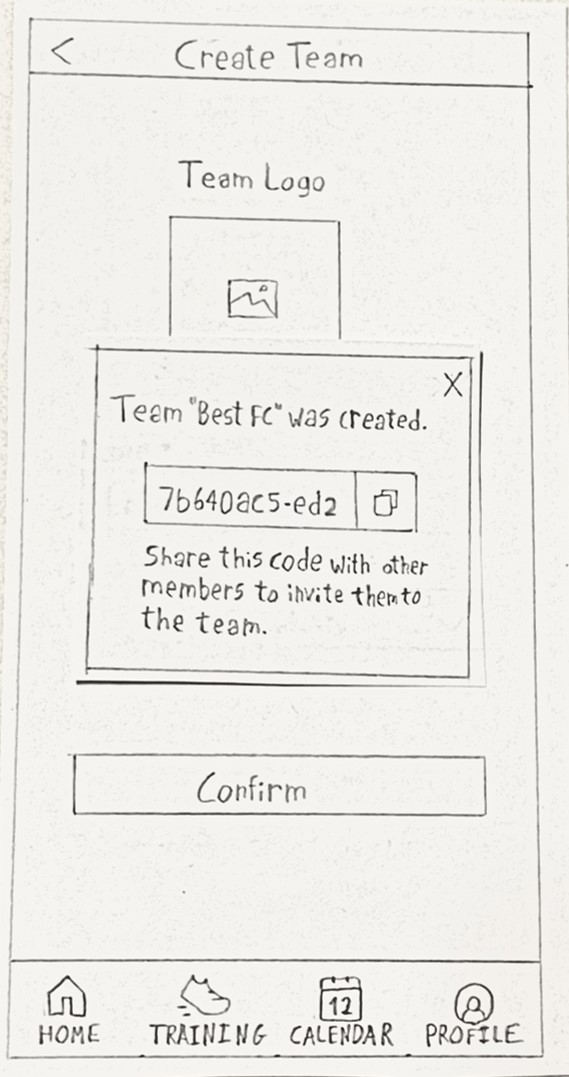 Create Team
Team Logo
X
Team "Best FC" was created.
7b640ac5-ed2
Share this code with other
members to invite them to
the team.
Confirm
12
HOME TRAINING CALENDAR PROFILE